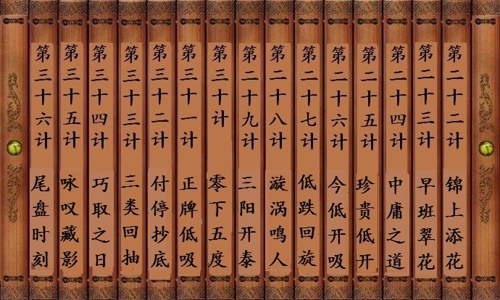 第二十二计 锦上添花
第二十三计 早班翠花
第二十四计 中庸之道
第二十五计 珍贵低开
第二十六计 今低开吸
第二十七计 低跌回旋
第二十八计 漩涡鸣人
第二十九计 三阳开泰
第三十计 零下五度
第三十一计 正牌低吸
第三十二计 付停抄底
第三十三计 三类回抽
第三十四计 巧取之日
第三十五计 咏叹藏影
第三十六计 尾盘时刻